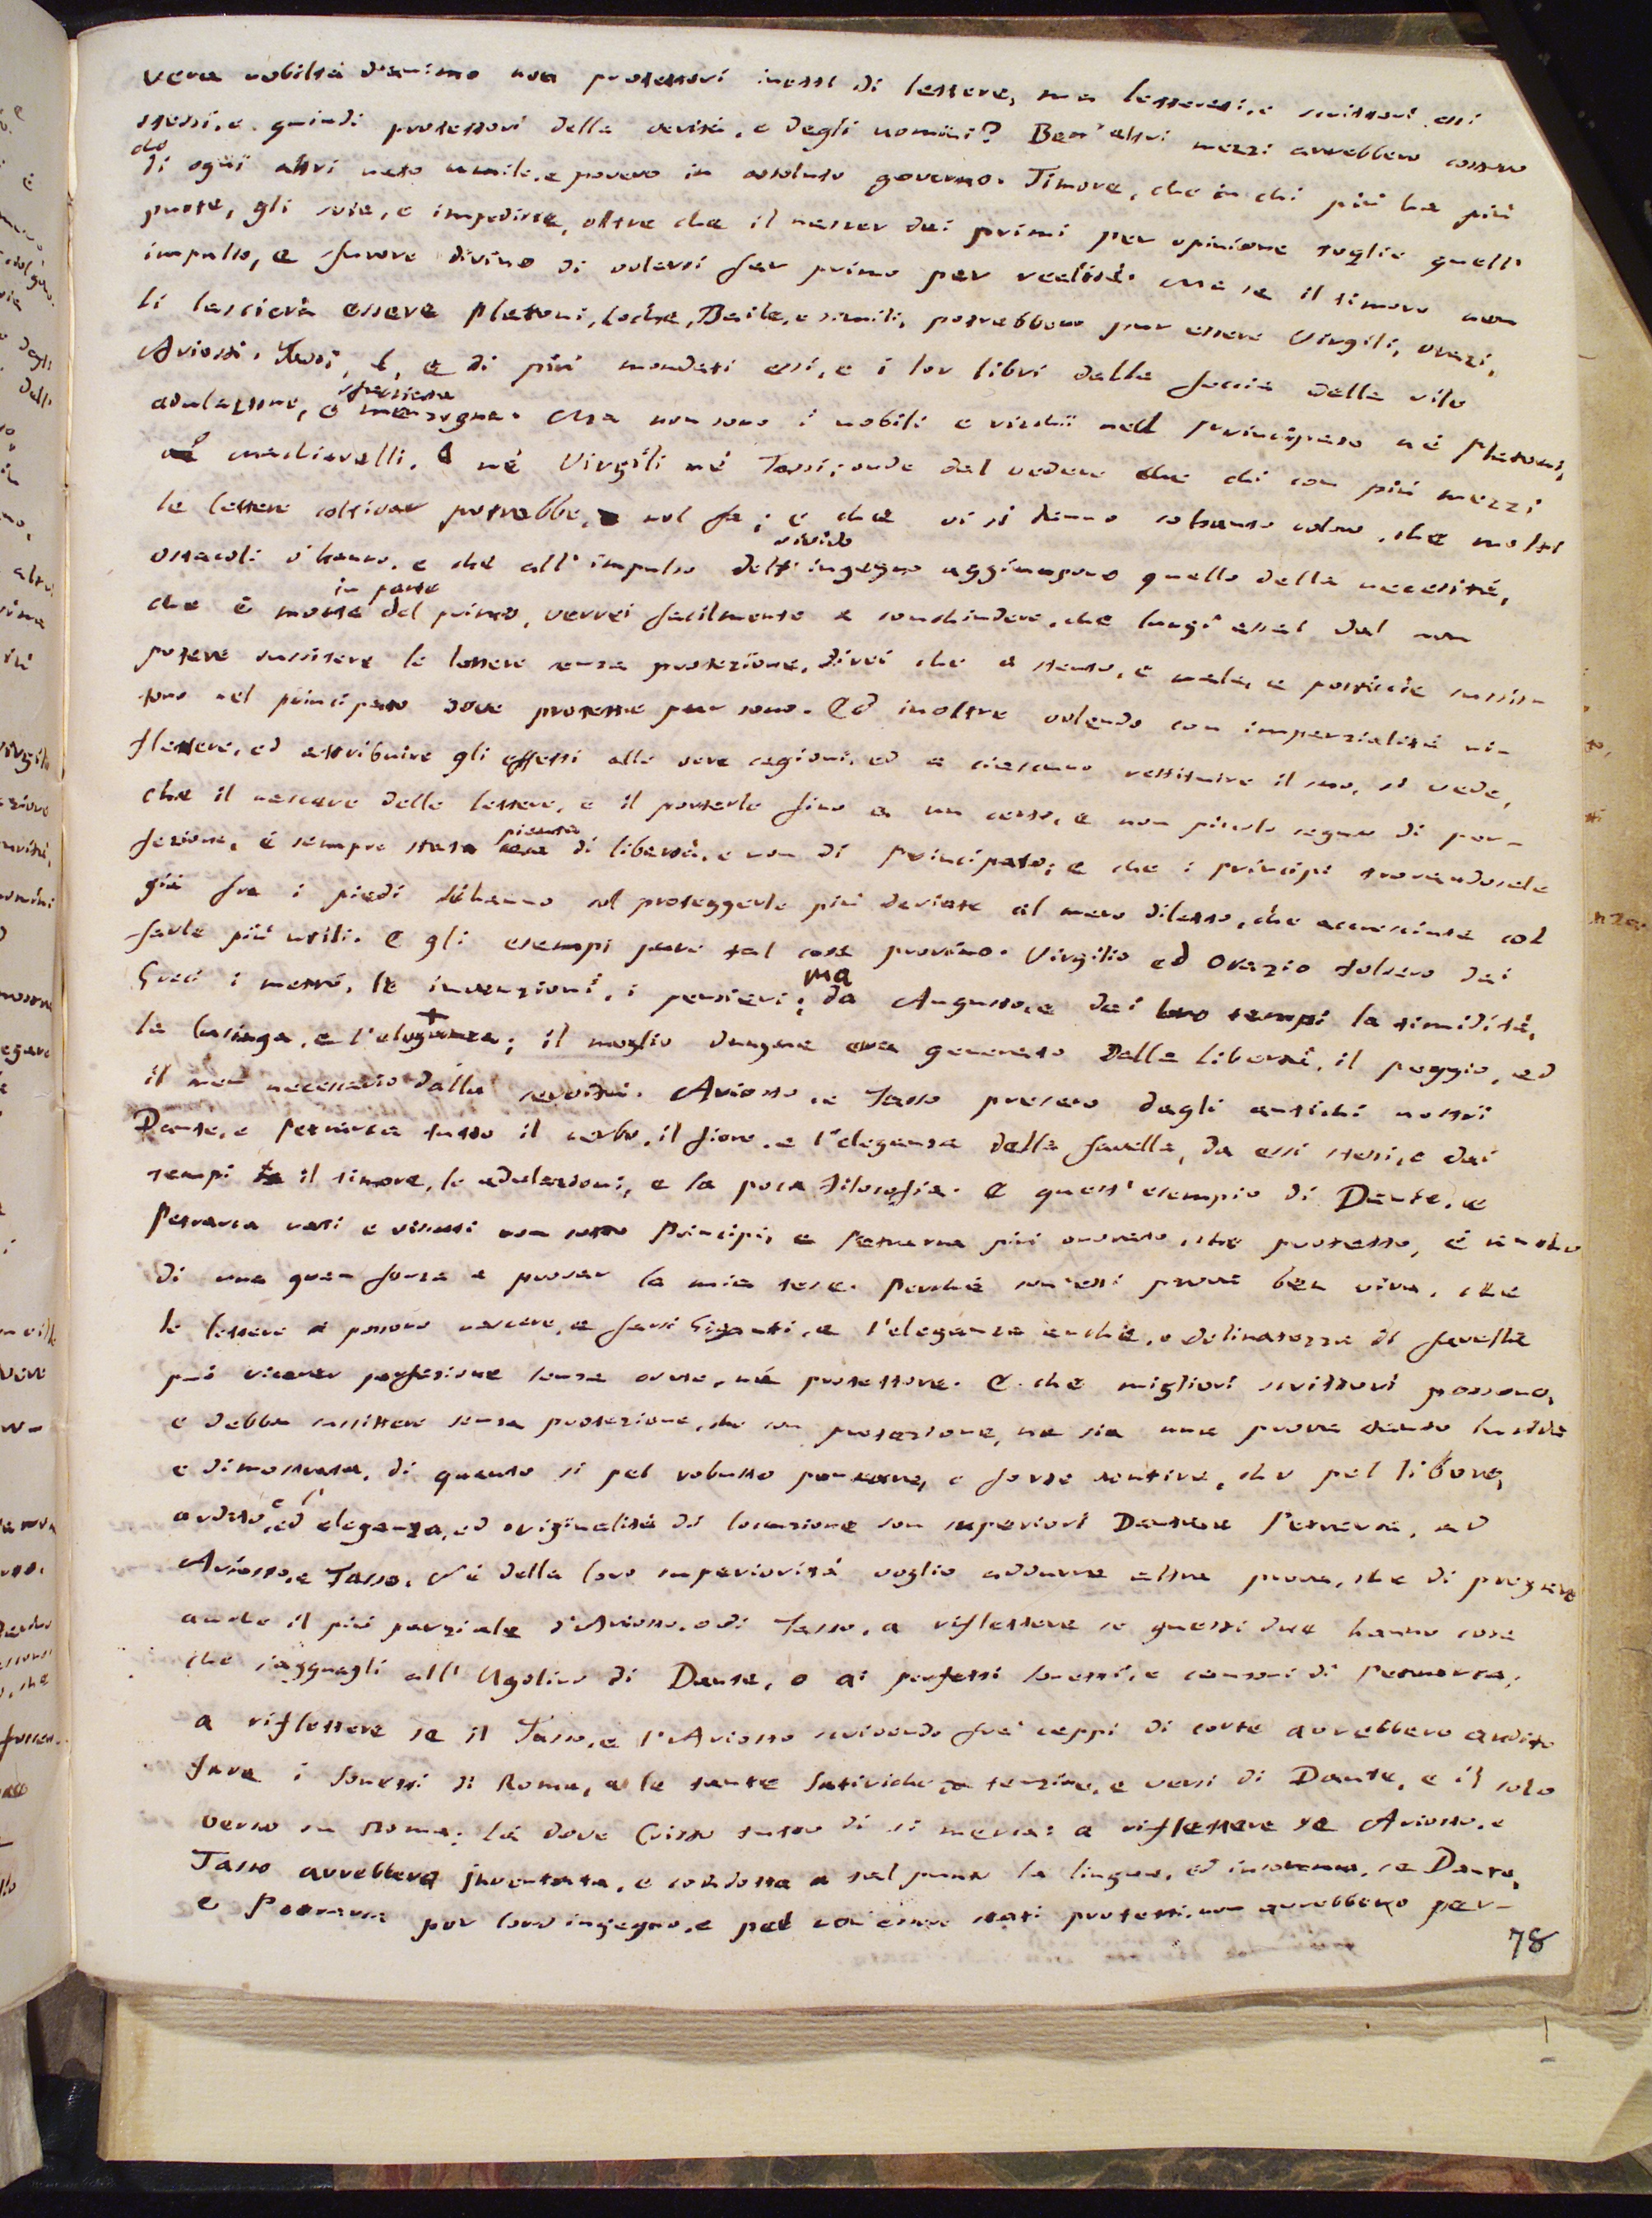 vera nobiltà d'animo non protettori inetti di lettere, ma letterati, e scrittori essi
stessi, e quindi protettori della verità, e degli uomini? Ben' altri mezzi avrebbero costoro
che
di ogni altri nato umile, e povero in assoluto governo. Timore, che in chi più ha più
puote, gli svia, e impedisce, oltre che il nascer dei primi per opinione toglie quell'
impulso, e furore divino di volersi far primo per realtà. Ma se il timore non
li lascierà essere Platoni, Locke, Baile, e simili, potrebbono pur essere Virgilj, Orazi,
Ariosti, Tassi, e di più mondati essi, e i lor libri dalla feccia della vile
adulazione, e menzogna. Ma non sono i nobili e ricchi nell principato nè Platoni,
nè Machiavelli, nè Virgilj nè Tassi; onde dal vedere che chi con più mezzi
le lettere coltivar potrebbe, nol fa; e che vi si danno soltanto coloro, che molti
ostacoli v'hanno, e che all' impulso dell' ingegno aggiungono quello della necessità,
in parte
che è morte del primo, verrei facilmente a conchiudere, che lungi assai dal non
potere sussistere le lettere senza protezione, direi che a stento, e male, e posticcie sussis-
tono nel principato dove protette pur sono. Ed inoltre volendo con imparzialità ri-
flettere, ed attribuire gli effetti alle vere cagioni, ed a ciascuno restituire il suo, si vede,
che il nascere delle lettere, e il portarle fino a un certo, e non piccolo segno di per-
pianta
fezione, è sempre stata cosa di libertà, e non di Principato; e che i principi trovandosele
già fra i piedi le hanno col proteggerle più deviate al mero diletto, che accresciute col
farle più utili. E gli esempi pure tal cosa provino. Virgilio ed Orazio tolsero dai
Greci i metri, le invenzioni, i pensieri; ma da Augusto, e dai loro tempi la timidità,
la lusinga, e l'eleganza; il meglio dunque era generato dalla libertà, il peggio, ed
il men necessario dalla servitù. Ariosto, e Tasso presero dagli antichi nostri
Dante, e Petrarca tutto il nerbo, il fiore, e l'eleganza della favella, da essi stessi, e dai
tempi il timore, le adulazioni, e la poca filosofia. E quest' esempio di Dante, e
Petrarca nati e vissuti non sotto Principi, e Petrarca più onorato, che protetto, è anche
di una gran forza a provar la mia tesi. Perchè son' essi prova ben viva, che
le lettere possono nascere, e farsi Giganti, e l'eleganza anche, e delicatezza di favella
può ricever perfezione senza corte, nè protettore. E che migliori scrittori possono,
e debban sussistere senza protezione, che con protezione, ne sia una prova chiara lucida
e dimostrata, di quanto sì pel robusto pensare, e forte sentire, che pel libero,
ardito, ed eleganza, ed originalità di locuzione son superiori Dante e Petrarca, ad
Ariosto, e Tasso. Nè della loro superiorità voglio addurre altra prova, che di pregare
anche il più parziale d'Ariosto, o di Tasso, a riflettere se questi due hanno cosa
che s'agguagli all' Ugolino di Dante, o ai perfetti sonetti, e canzoni di Petrarca;
a riflettere se il Tasso, e l'Ariosto scrivendo fra' ceppi di corte avrebbero ardito
fare i sonetti di Roma, e le tante satiriche terzine, e versi di Dante, e il solo
verso su Roma: Là dove Cristo tutto dì si merca: a riflettere se Ariosto, e
Tasso avrebbero inventata, e condotta a tal punto la lingua, ed insomma, se Dante,
e Petrarca per loro ingegno, e pel non essere stati protetti, non avrebbero per-
78